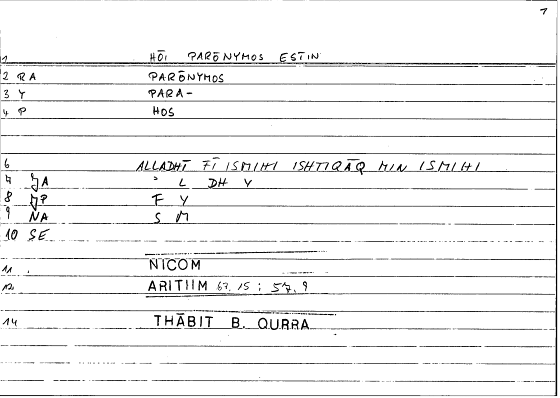 1
1 HŌI PARŌNYMOS ESTIN
2 RA PARŌNYMOS
3 Y PARA-
4 P HOS
6 ALLADHĪ FĪ ISMIHI ISHTIQĀQ MIN ISMIHI
7 A ʾ L DH Y
8 P F Y
9 NA S M
10 SE
11 NICOM
12 ARITIIM 67.15 : 57.9
14 THĀBIT B. QURRA